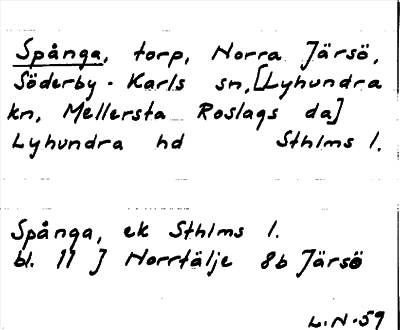 Spånga, torp, Norra Järsö,
Söderby-Karls sn, [Lyhundra
kn, Mellersta Roslags da]
Lyhundra hd Sthlms l.
Spånga, ek Sthlms l.
bl. 11 J Norrtälje 8b Järsö
L.N-59